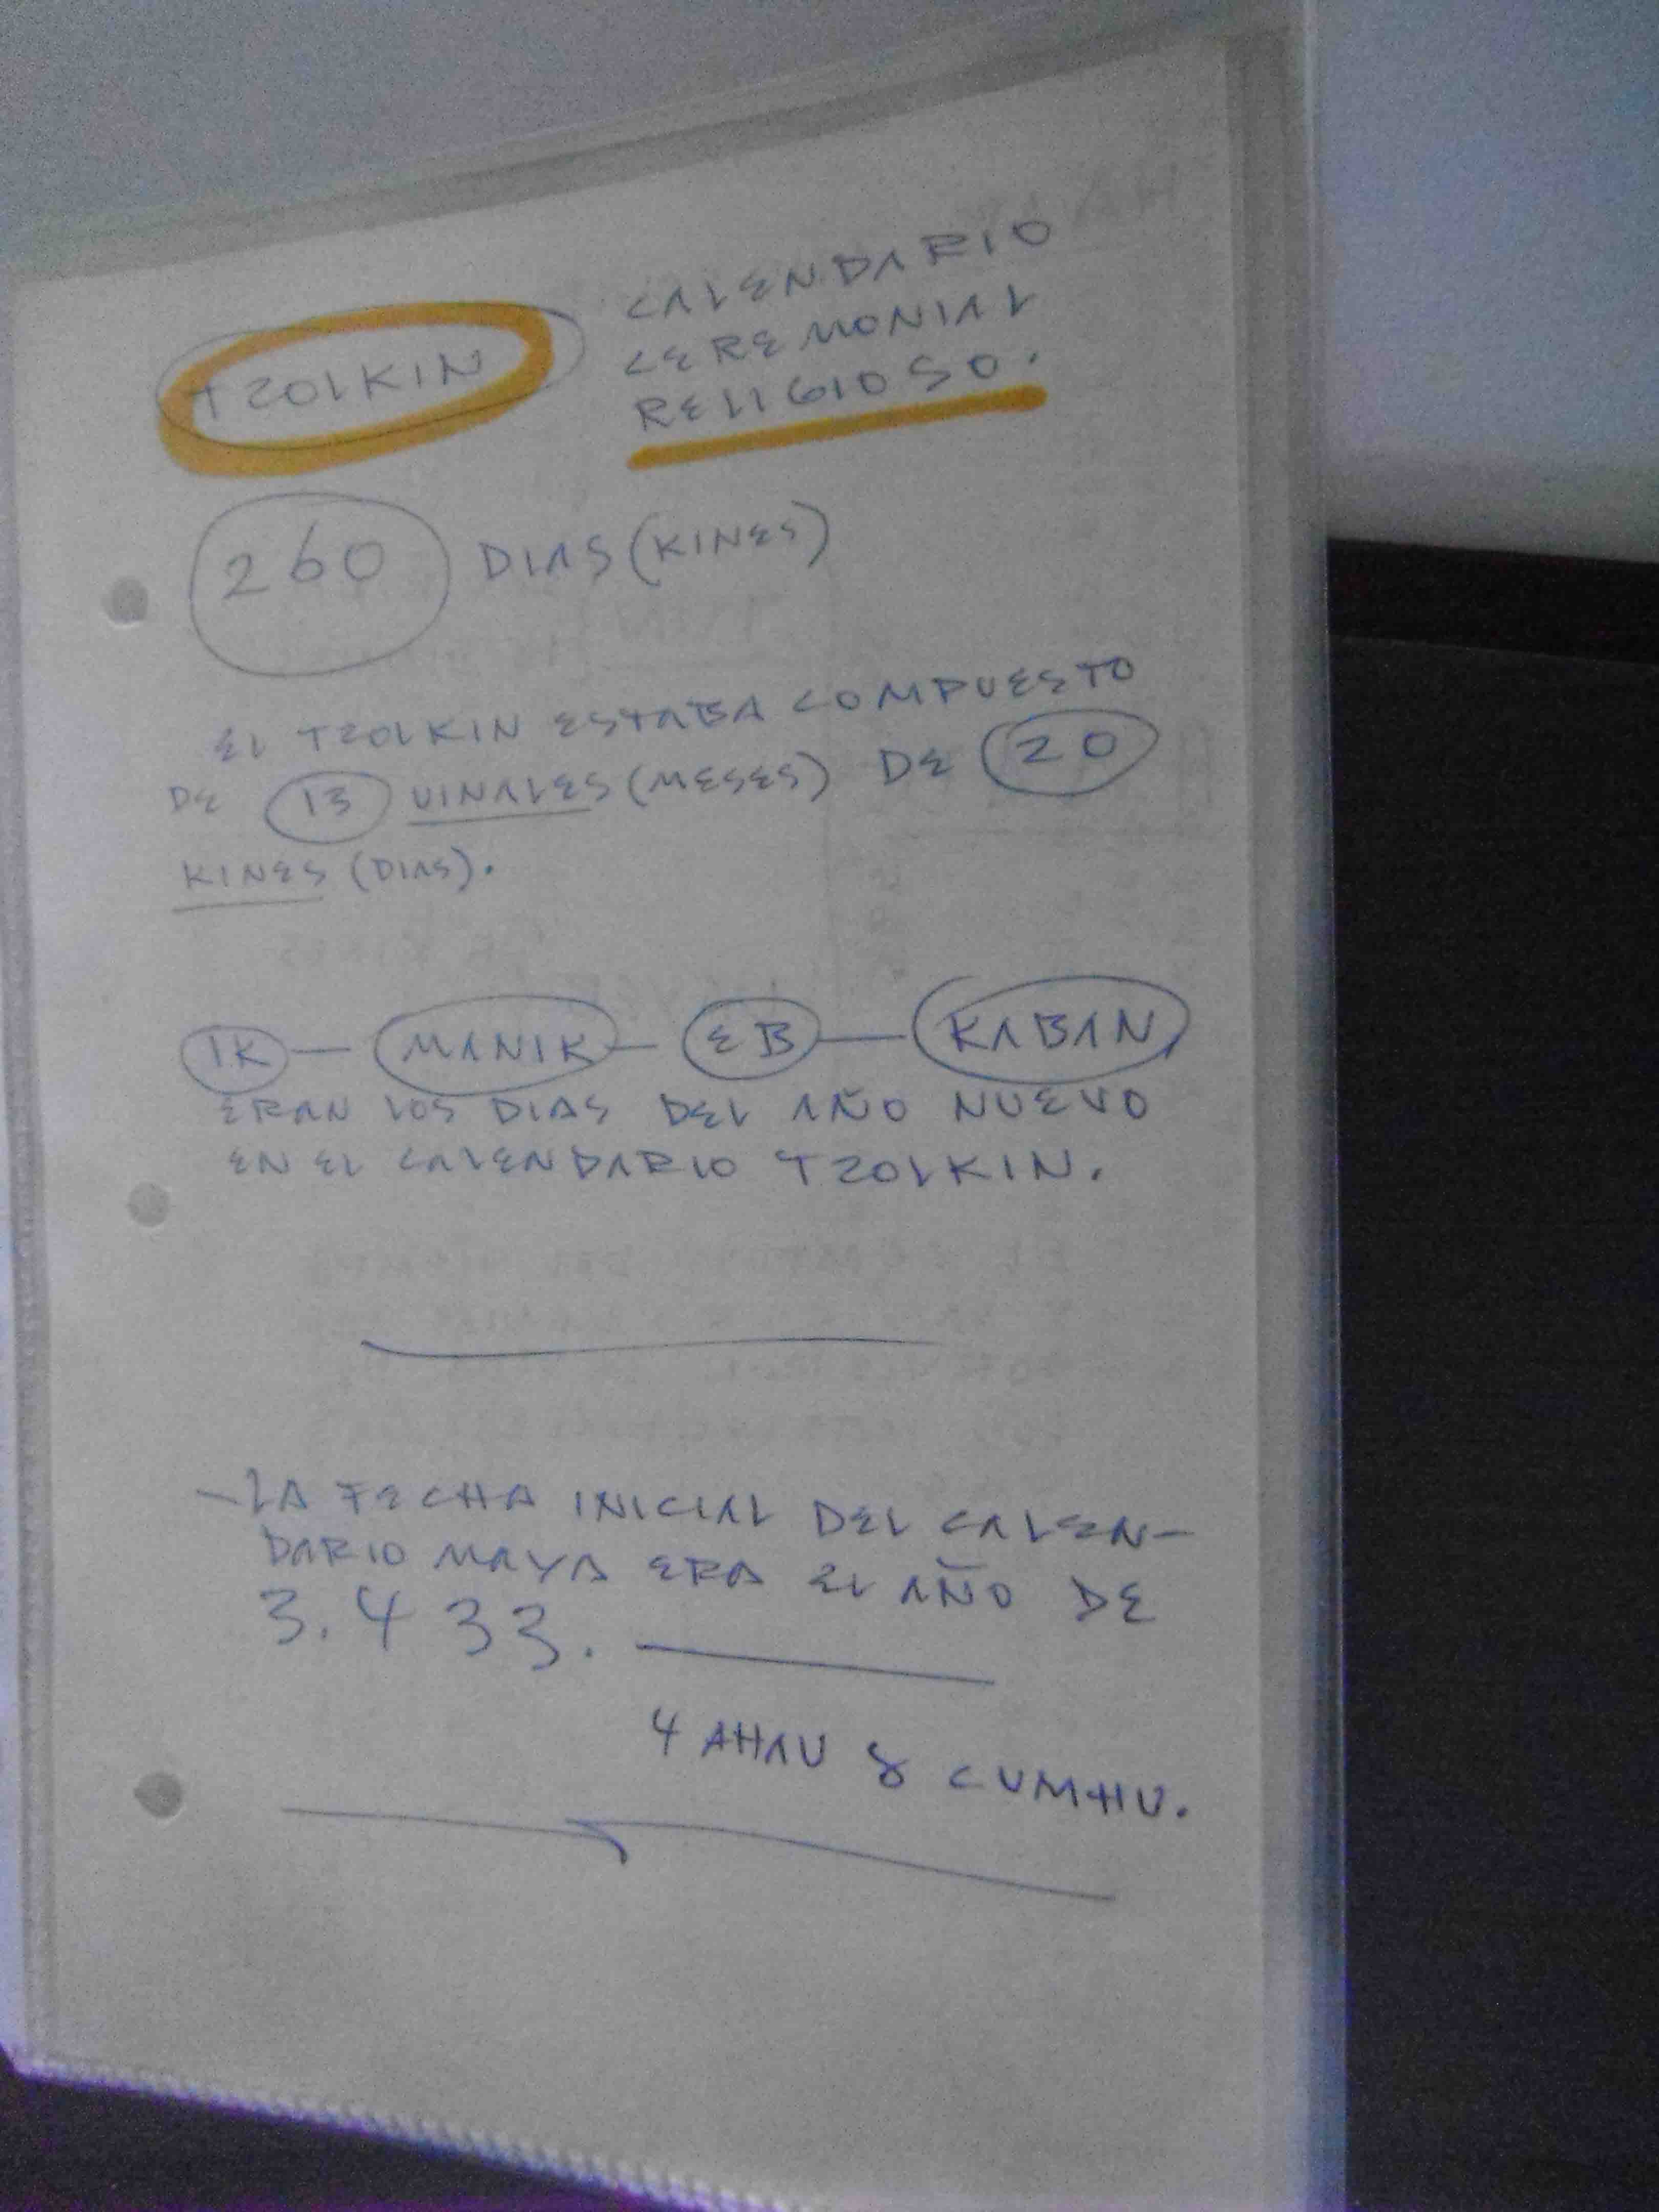 TZOLKIN
CALENDARIO
CEREMONIAL
RELIGIOSO.
260 DIAS (KINES)
EL TZOLKIN ESTABA COMPUESTO
DE 13 UINALES (MESES) DE 20
KINES (DIAS).
IK — MANIK — EB — KABAN
ERAN LOS DIAS DEL AÑO NUEVO
EN EL CALENDARIO TZOLKIN.
- LA FECHA INICIAL DEL CALEN-
DARIO MAYA ERA EL AÑO DE
3.433.
4 AHAU 8 CUMHU.